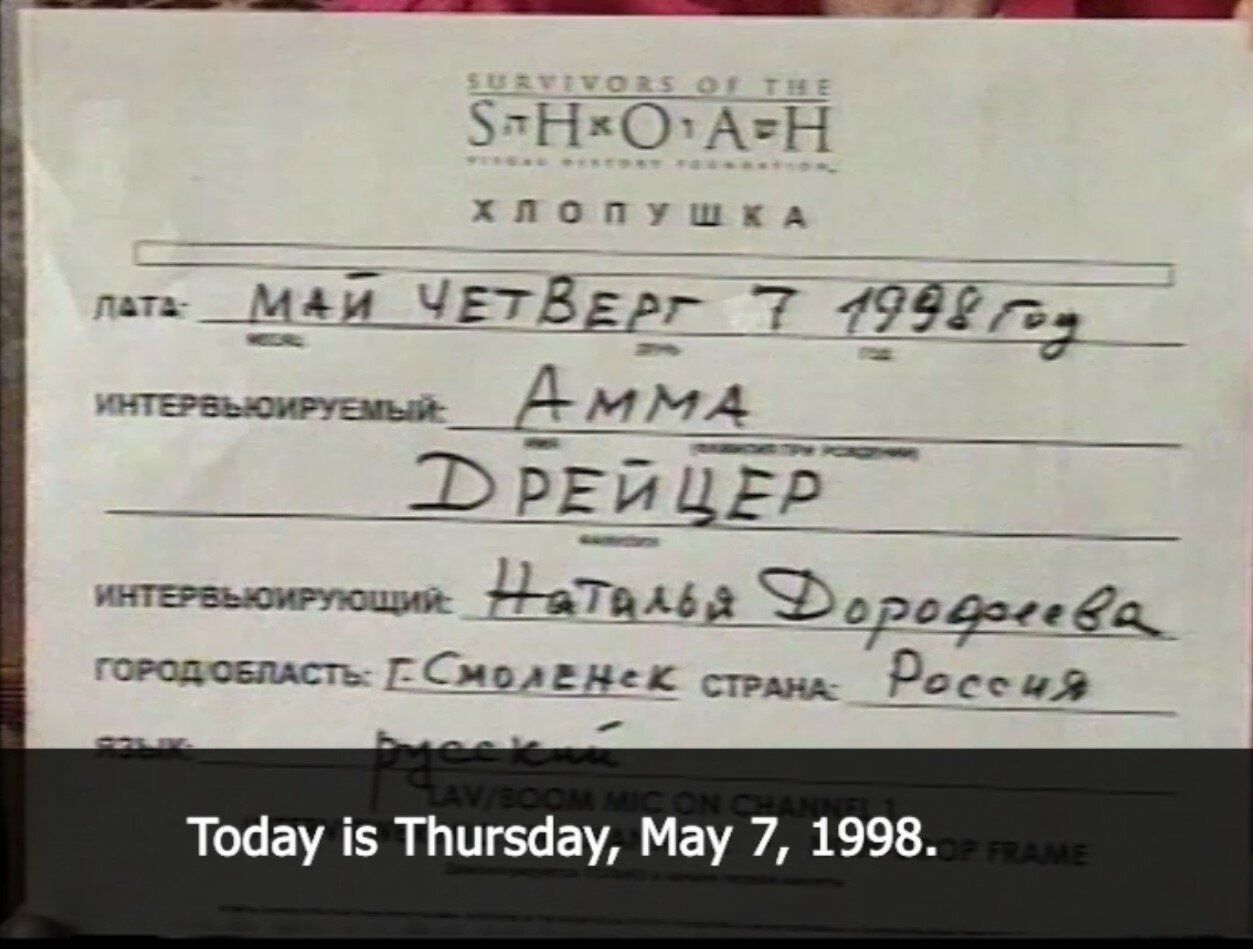 SURVIVORS OF THE
SהHאOוAשH
VISUAL HISTORY FOUNDATION
ХЛОПУШКА
ДАТА: МАЙ ЧЕТВЕРГ 7 1998 год
МЕСЯЦ ДЕНЬ ГОД
ИНТЕРВЬЮИРУЕМЫЙ: АММА
ИМЯ (ФАМИЛИЯ ПРИ РОЖДЕНИИ)
ДРЕЙЦЕР
ФАМИЛИЯ
ИНТЕРВЬЮИРУЮЩИЙ: Наталья Дорофеева
ГОРОД/ОБЛАСТЬ: г. Смоленск СТРАНА: Россия
ЯЗЫК: русский
LAV/BOOM MIC ON CHANNEL 1
DROP FRAME
Today is Thursday, May 7, 1998.